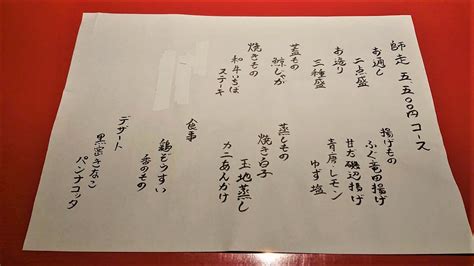 師走 五、五〇〇円 コース
お通し
二点盛
お造り
三種盛
蓋もの
鯨じゃが
焼きもの
和牛いちぼ
ステーキ
揚げもの
ふぐ竜田揚げ
甘だ磯辺揚げ
青唐レモン
ゆず塩
蒸しもの
焼き白子
玉地蒸し
カニあんかけ
食事
鶏ぞうすい
香のもの
デザート
黒蜜きなこ
パンナコッタ